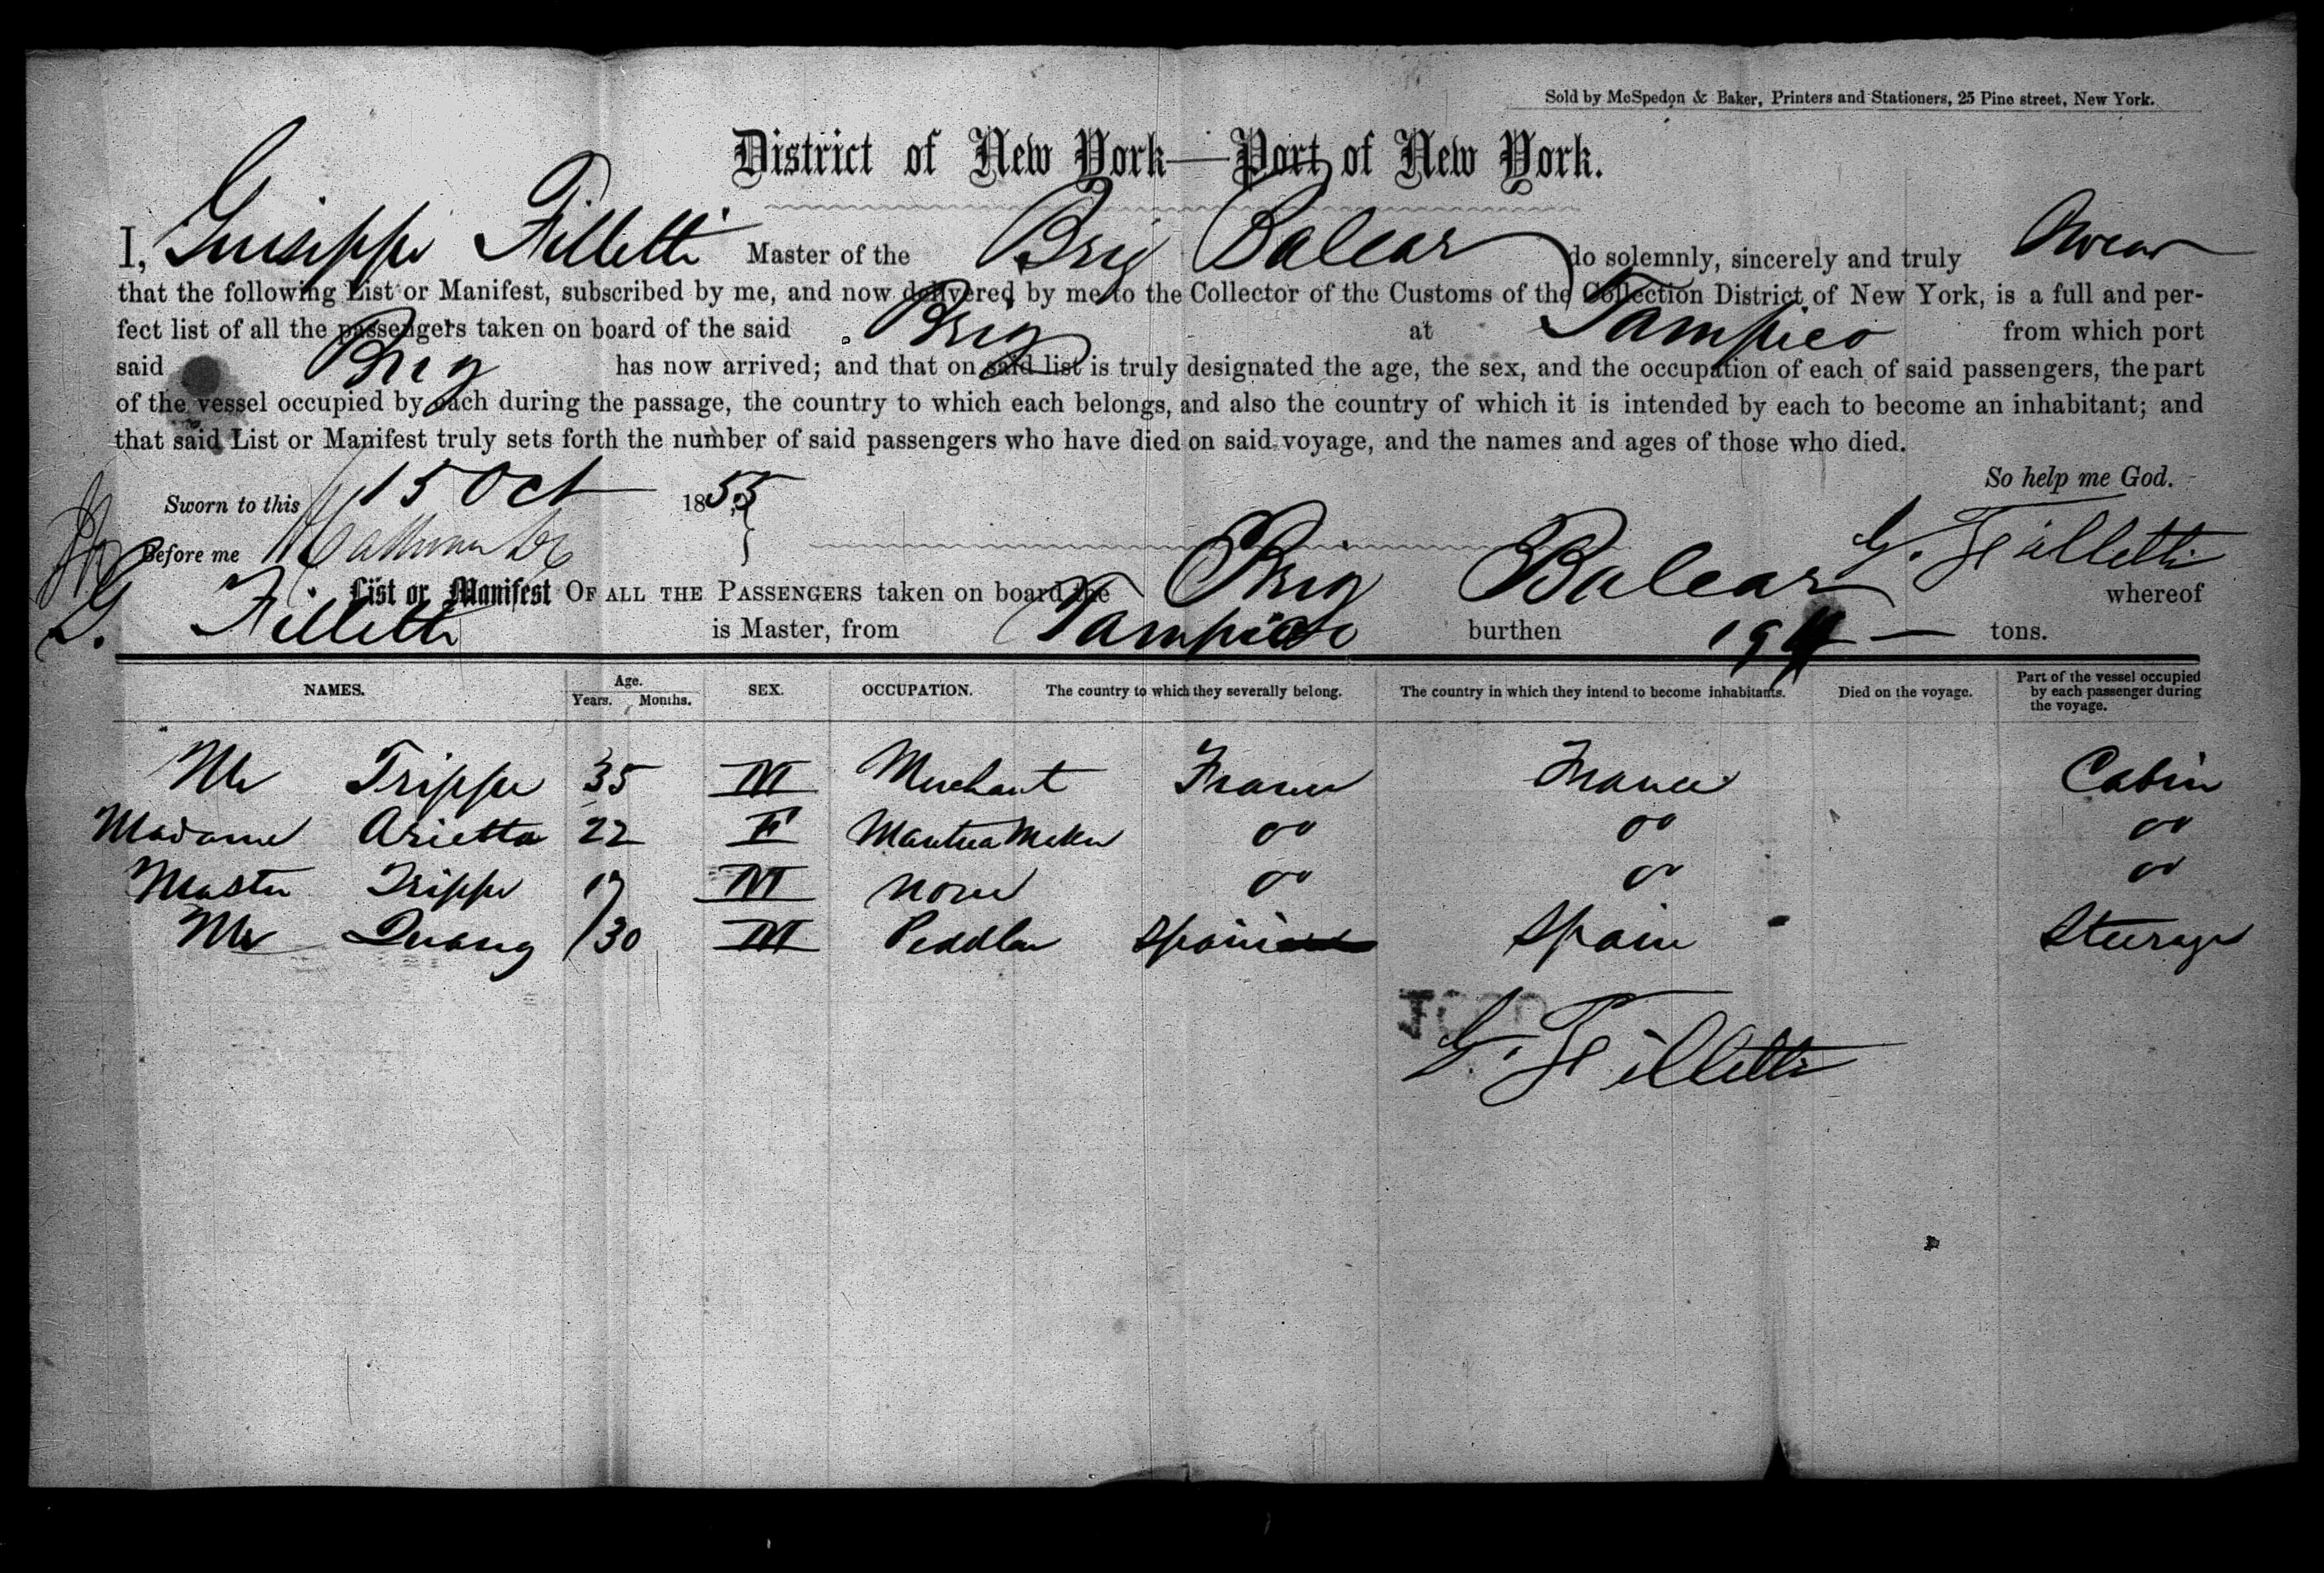 Sold by McSpedon & Baker, Printers and Stationers, 25 Pine street, New York.
District of New York—Port of New York.
I, Guiseppe Filletti Master of the Brig Balear do solemnly, sincerely and truly Swear
that the following List or Manifest, subscribed by me, and now delivered by me to the Collector of the Customs of the Collection District of New York, is a full and per-
fect list of all the passengers taken on board of the said Brig at Tampico from which port
said Brig has now arrived; and that on said list is truly designated the age, the sex, and the occupation of each of said passengers, the part
of the vessel occupied by each during the passage, the country to which each belongs, and also the country of which it is intended by each to become an inhabitant; and
that said List or Manifest truly sets forth the number of said passengers who have died on said voyage, and the names and ages of those who died.
So help me God.
Sworn to this 15 Oct 1855
Before me
G. Filletti
List or Manifest OF ALL THE PASSENGERS taken on board the Brig Balear whereof
G. Filletti is Master, from Tampico burthen 194 — tons.
NAMES. Age. Years. Months. SEX. OCCUPATION. The country to which they severally belong. The country in which they intend to become inhabitants. Died on the voyage. Part of the vessel occupied by each passenger during the voyage.
Mr Trippe 35 M Merchant France France Cabin
Madame Arietta 22 F Mantua Maker do do do
Master Trippe 17 M none do do do
Mr Quang 30 M Peddler Spain Spain Steerage
G. Filletti